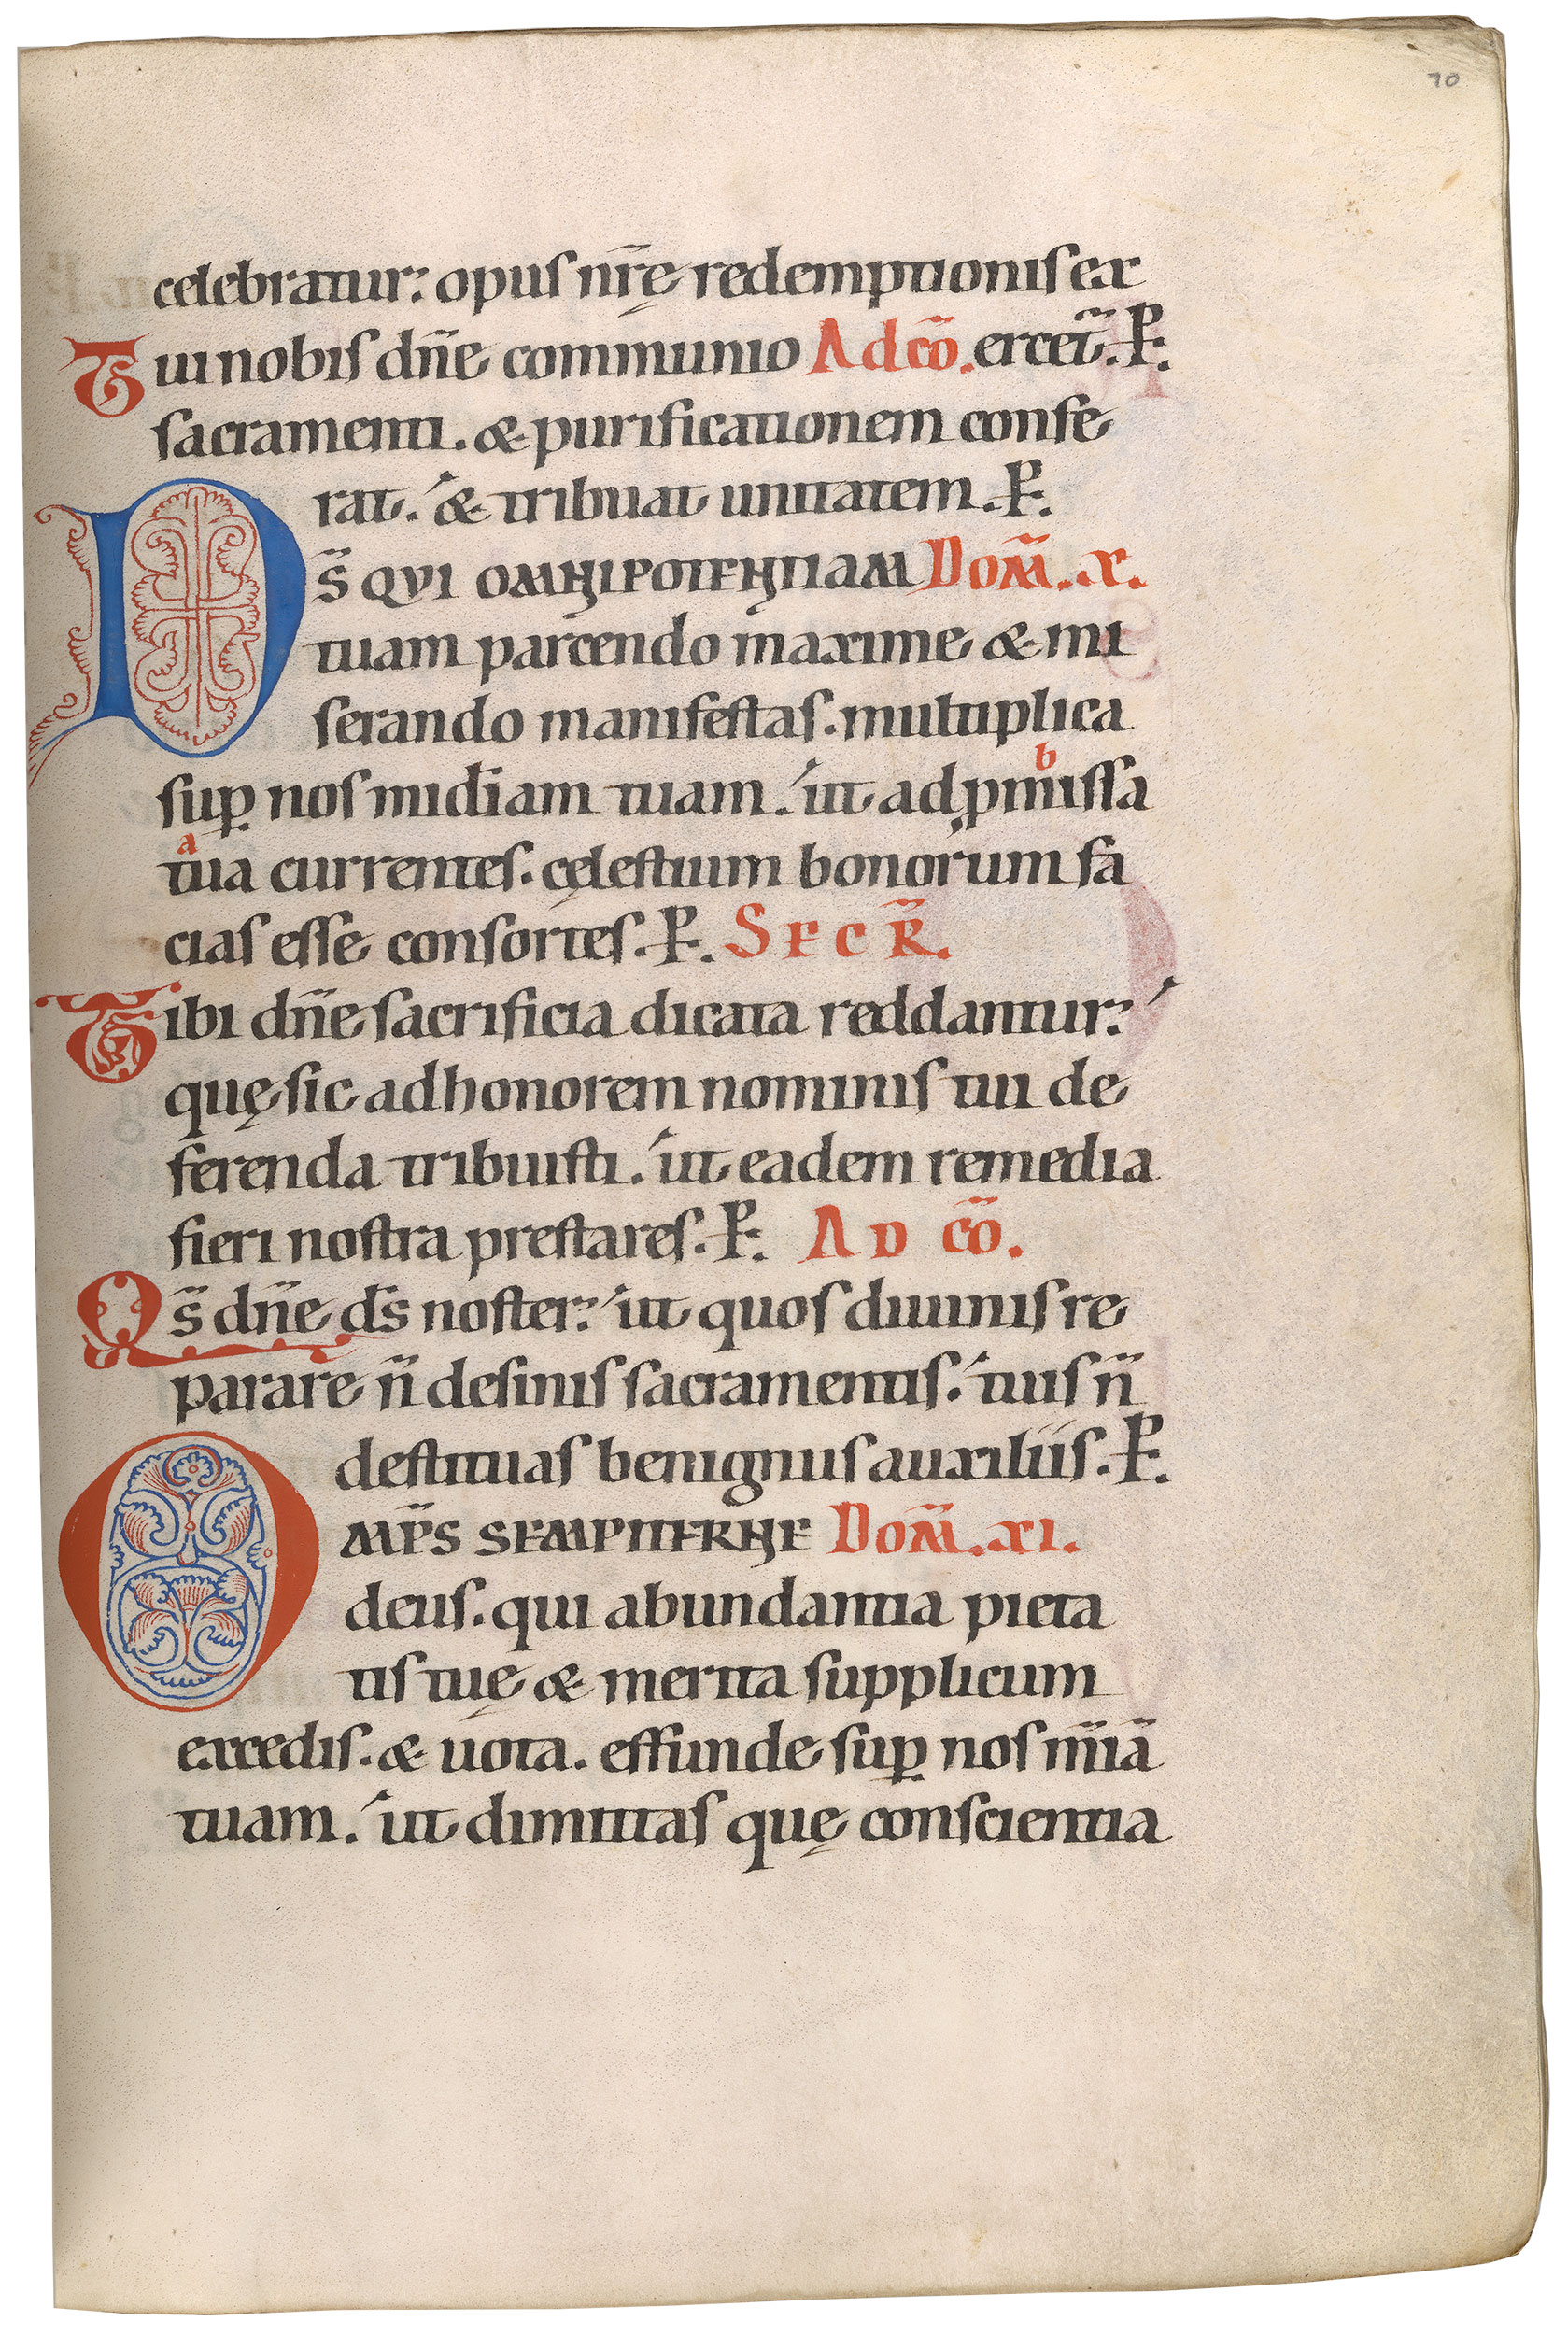 70
celebratur: opus nr̄ę redemptionis ex
Tui nobis dn̄e communio Ad cō. ercet̄. P.
sacramenti. & purificationem confe
rat. & tribuat unitatem. P.
DS̄ QVI OMNIPOTENTIAM Dom̄. x.
tuam parcendo maxime & mi
serando manifestas. multiplica
sup̱ nos mīdiam tuam. ut ad p̱missa
b
a
tua currentes. cęlestium bonorum fa
cias esse consortes. P. SECR̄.
Tibi dn̄e sacrificia dicata reddantur:
quę sic ad honorem nominis tui de
ferenda tribuisti. ut eadem remedia
fieri nostra prestares. P. AD cō.
Qs̄ dn̄e ds̄ noster: ut quos diuinis re
parare n̄ desinis sacramentis. tuis n̄
destituas benignus auxiliis. P.
OMP̄S SEMPITERNE Dom̄. xi.
deus. qui abundantia pieta
tis tuę & merita supplicum
excedis. & uota. effunde sup̱ nos mīā
tuam. ut dimittas quę conscientia